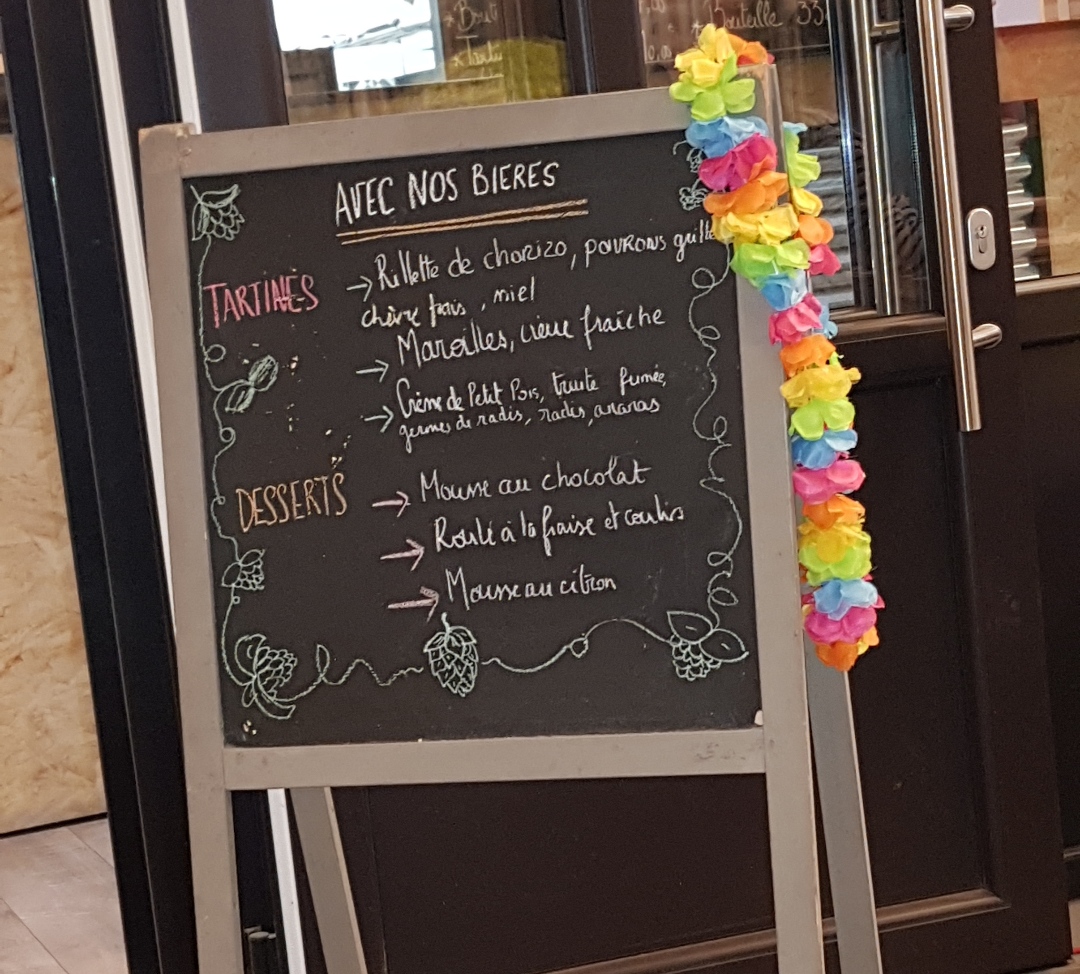 Bouteille 33
AVEC NOS BIERES
TARTINES
→ Rillette de chorizo, poivrons grillé
chèvre frais, miel
→ Maroilles, crème fraîche
→ Crème de Petit Pois, truite fumée,
germes de radis, radis, ananas
DESSERTS
→ Mousse au chocolat
→ Roulé à la fraise et coulis
→ Mousse au citron